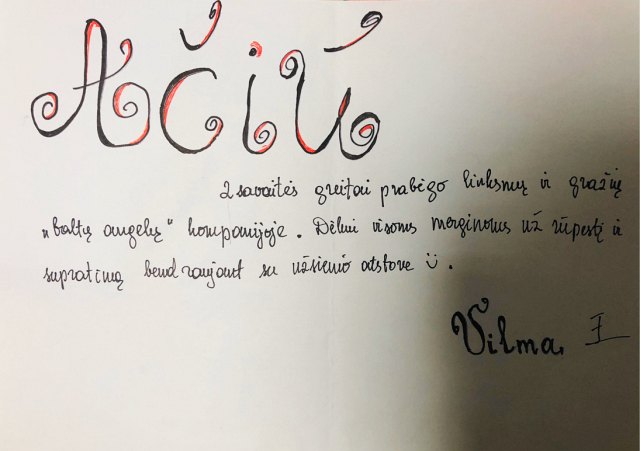 AČIŪ
2 savaitės greitai prabėgo linksmų ir gražių
„baltų angelų“ kompanijoje. Dėkui visoms merginoms už rūpestį ir
supratimą bendraujant su užsienio atstove ü.
Vilma